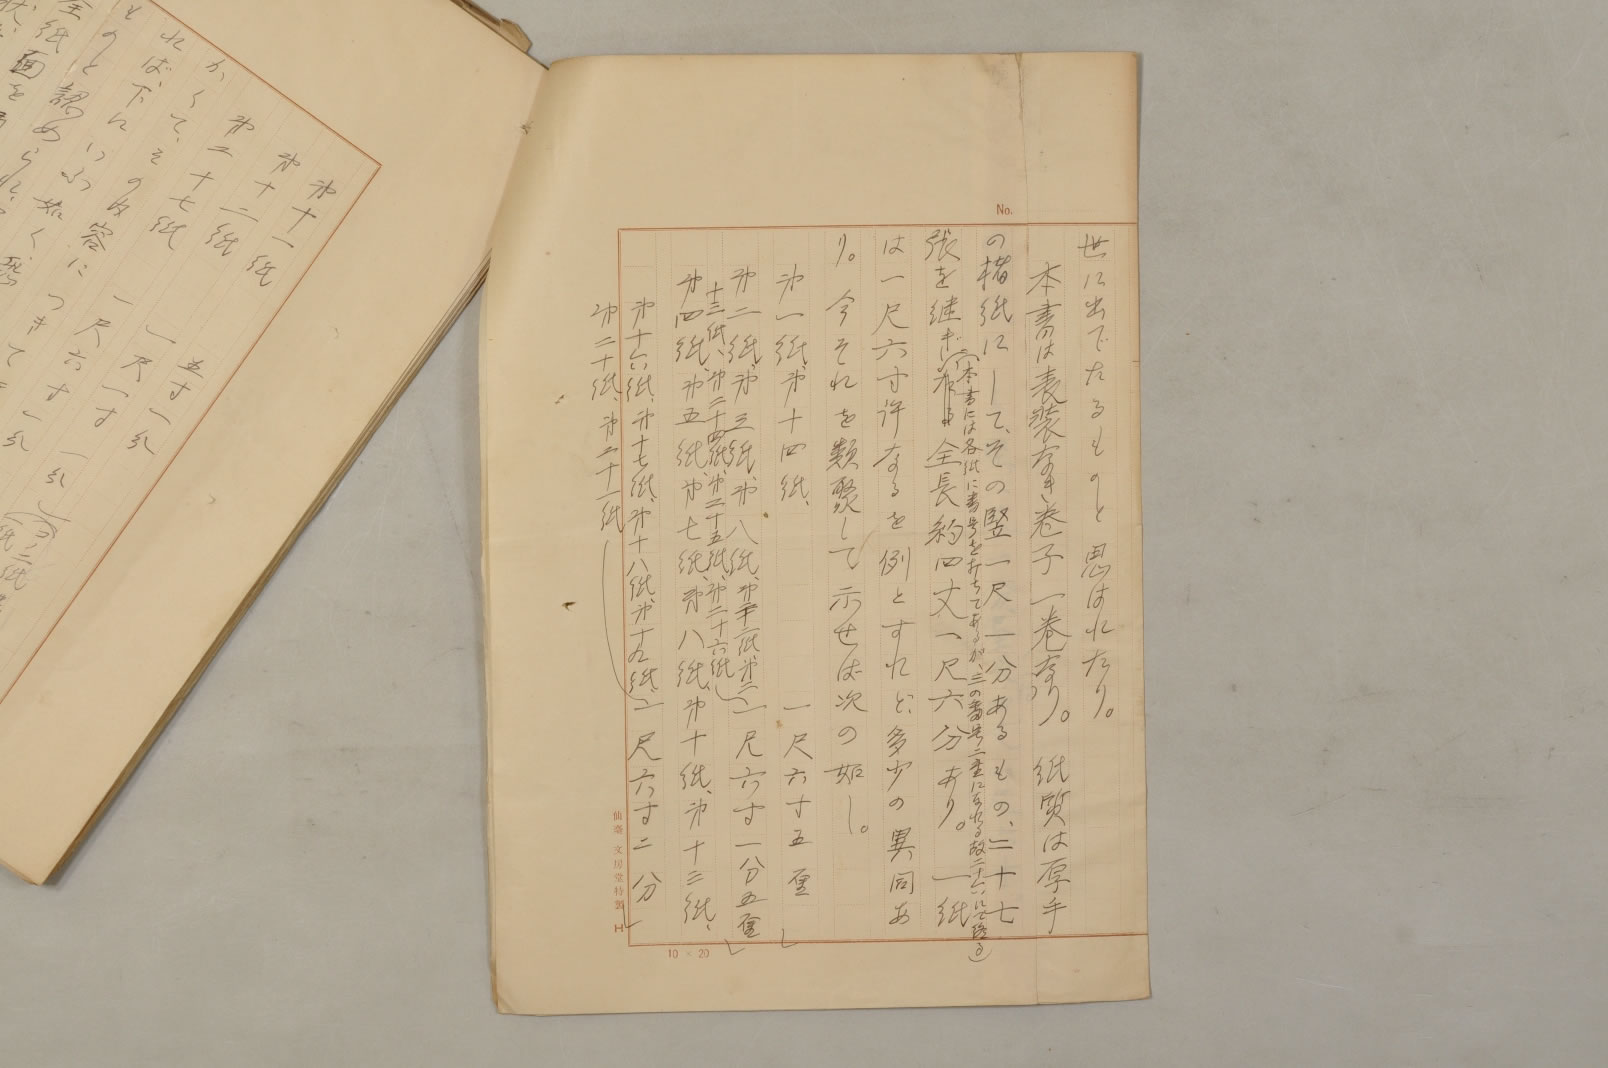 No.
世に出でたるものと思はれたり。
本書は表装なき卷子一卷なり。紙質は厚手
の楮紙にして、その竪一尺一分あるもの、二十七
(本書には各紙に番号を打ちてあるが、三の番号二重になれる故二十六にて終る)
張を継ぎ、全長約四丈一尺六分あり。一紙
は一尺六寸許なるを例とすれど、多少の異同あ
り。今それを類聚して示せば次の如し。
第一紙、第十四紙、 一尺六寸五厘
第二紙、第三紙、第八紙、第十二紙、第二 一尺六寸一分五厘
十三紙、第二十四紙、第二十五紙、第二十六紙
第四紙、第五紙、第七紙、第八紙、第十紙、第十三紙、
第十六紙、第十七紙、第十八紙、第十九紙、 一尺六寸二分
第二十紙、第二十一紙
仙臺 文房堂特製 H
10 × 20
第十一紙 五寸一分
第十二紙 一尺一寸
第二十七紙 一尺六寸一分
かくて、その内容につきて
れば、下にいふ如く、
ものと認めらる
全紙面を